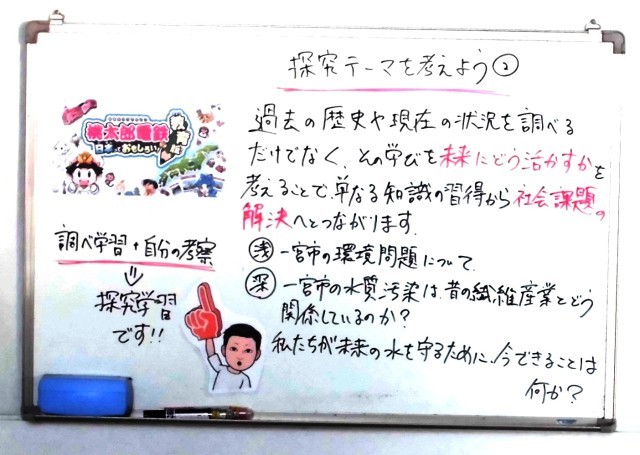 探究テーマを考えよう②
桃太郎電鉄
過去の歴史や現在の状況を調べる
だけでなく、その学びを未来にどう活かすかを
考えることで、単なる知識の習得から社会課題の
解決へとつながります。
浅 一宮市の環境問題について
深 一宮市の水質汚染は、昔の繊維産業とどう
関係しているのか?
私たちが未来の水を守るために、今できることは
何か?
調べ学習+自分の考察
⇓
探究学習
です!!